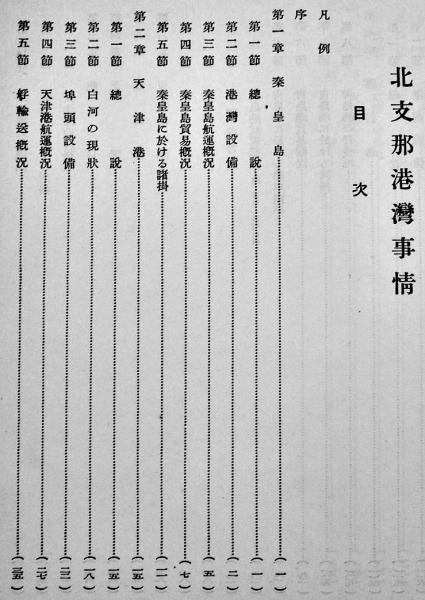 北支那港灣事情
目次
凡例
序
第一章 秦皇島……(一)
第一節 總說……(一)
第二節 港灣設備……(二)
第三節 秦皇島航運概況……(五)
第四節 秦皇島貿易概況……(七)
第五節 秦皇島に於ける諸掛……(一一)
第二章 天津港……(一五)
第一節 總說……(一五)
第二節 白河の現狀……(一八)
第三節 埠頭設備……(二三)
第四節 天津港航運概況……(二七)
第五節 艀輸送概況……(三五)